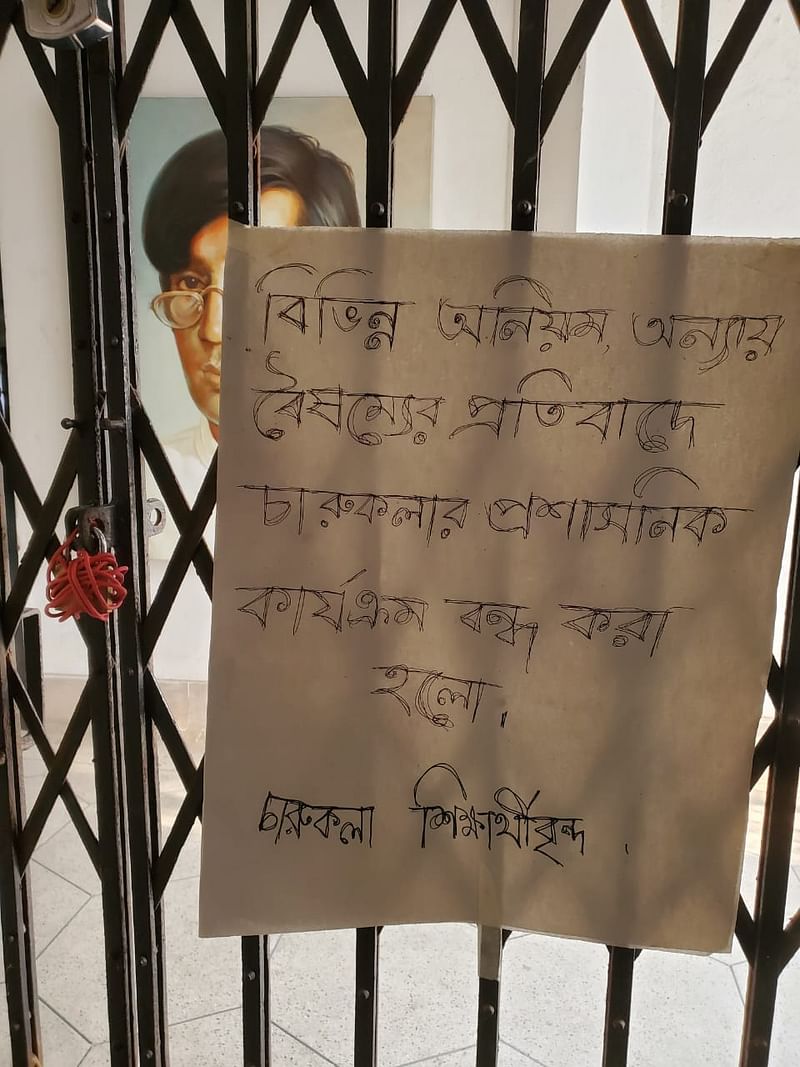 বিভিন্ন অনিয়ম, অন্যায়
বৈষম্যের প্রতিবাদে
চারুকলার প্রশাসনিক
কার্যক্রম বন্ধ করা
হলো।
চারুকলা শিক্ষার্থীবৃন্দ।